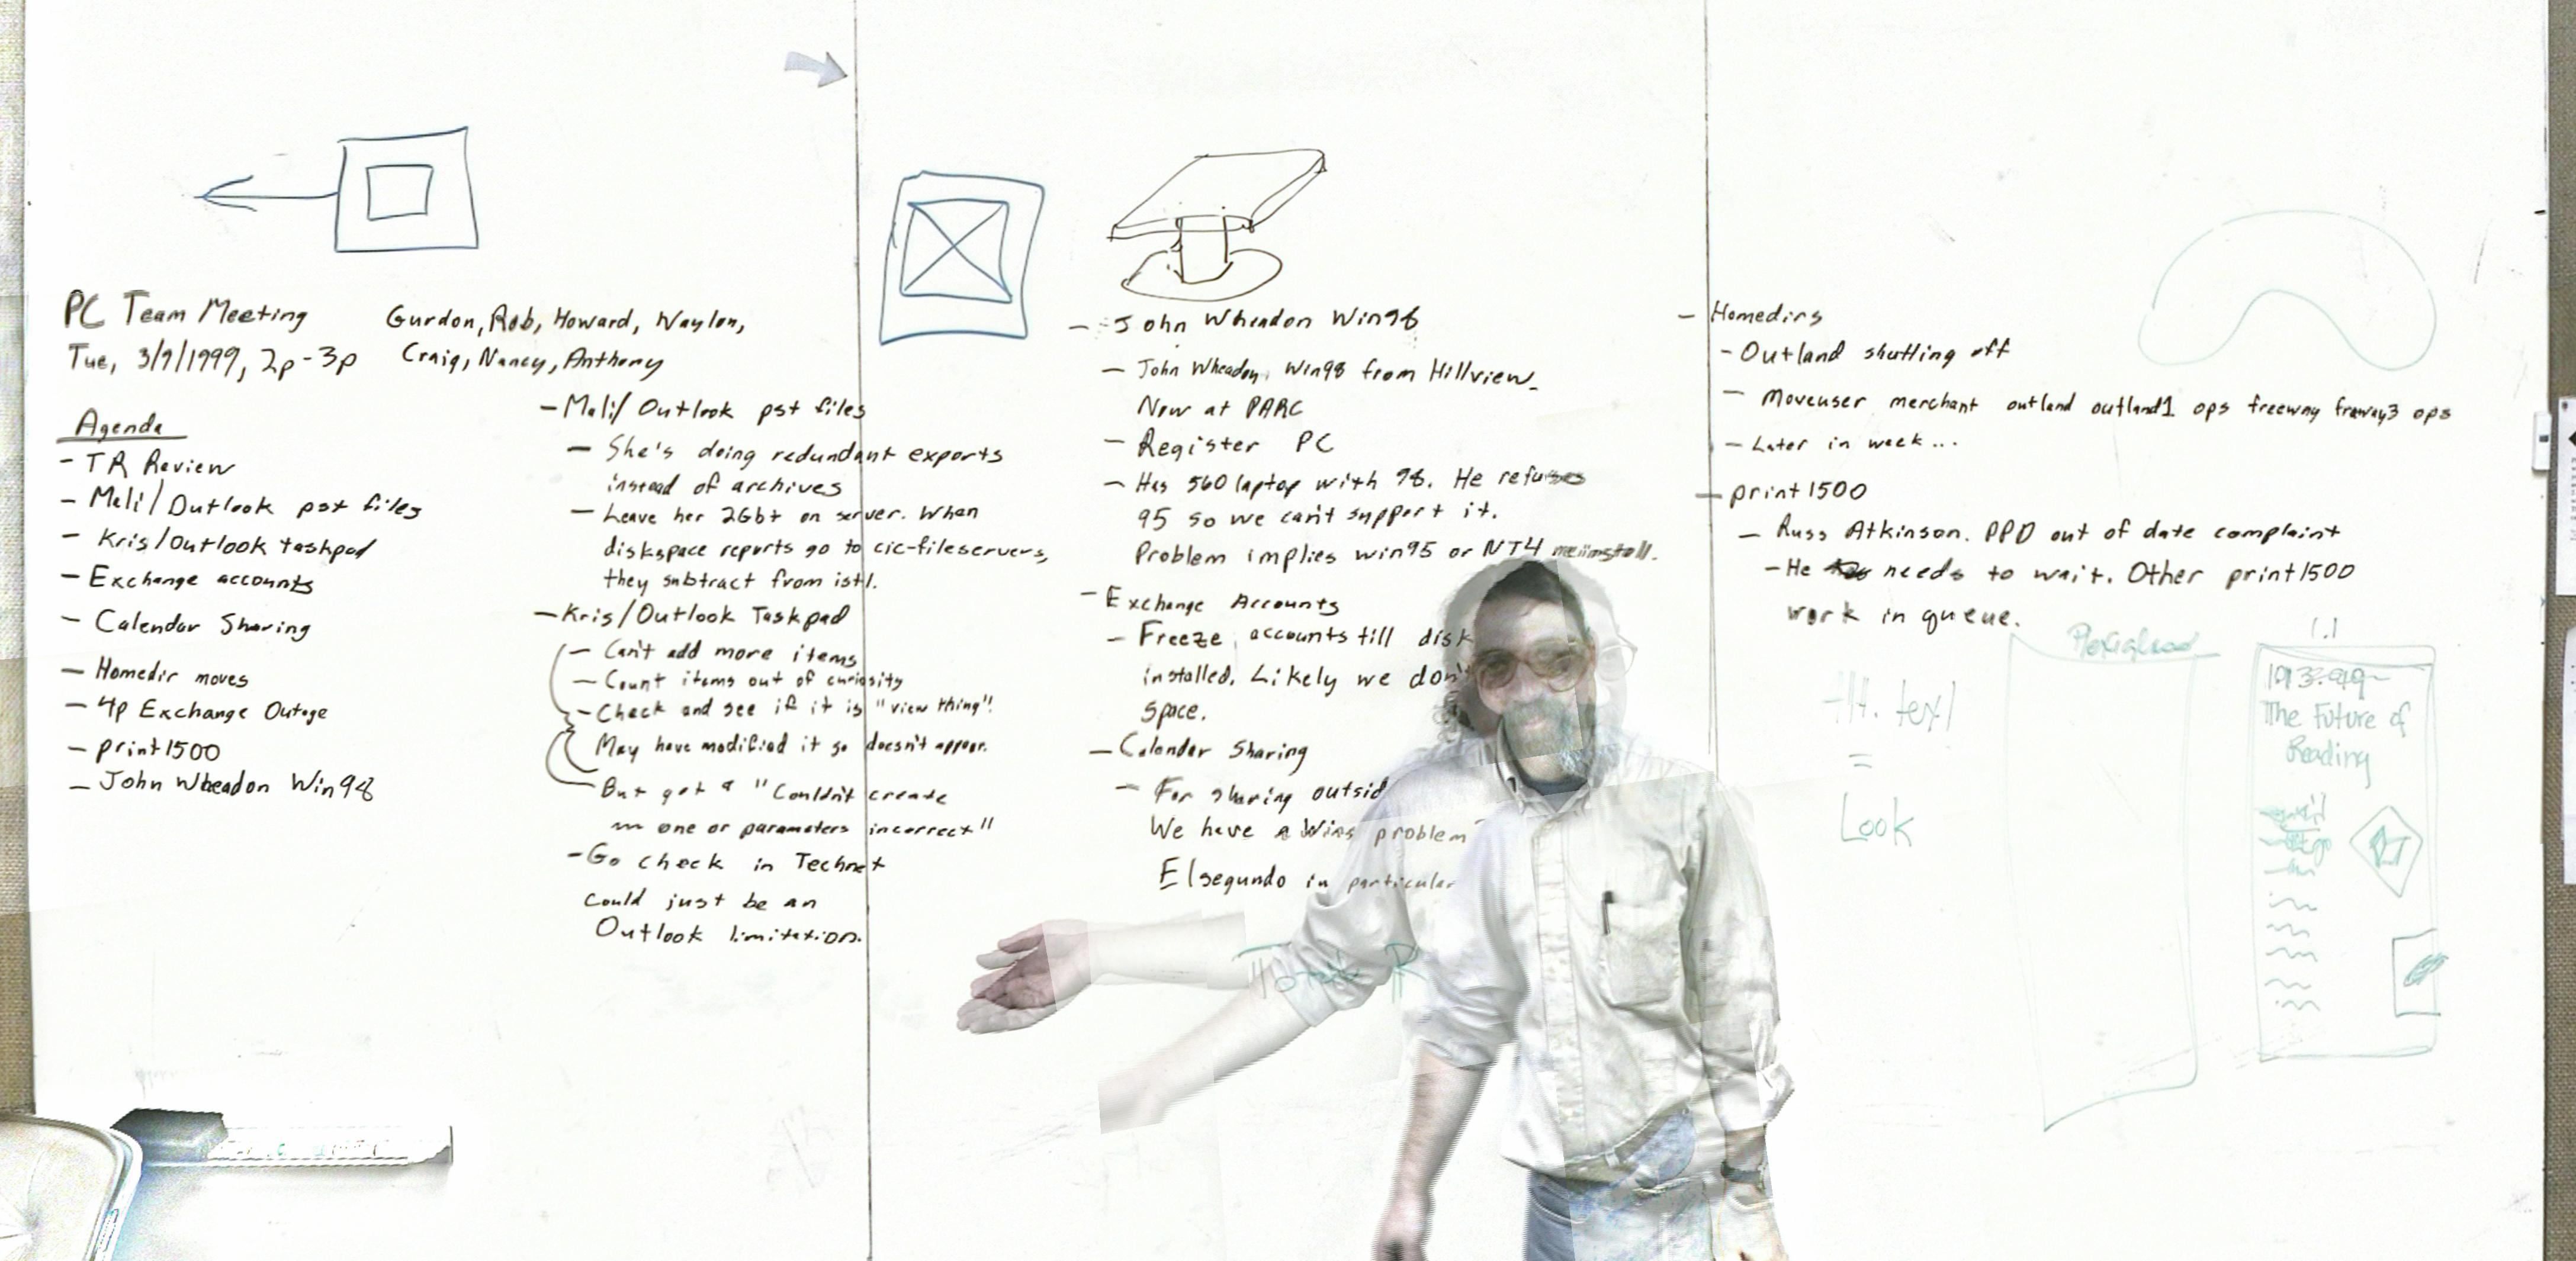 PC Team Meeting
Tue, 3/9/1999, 2p-3p
Gurdon, Rob, Howard, Waylon,
Craig, Nancy, Anthony
Agenda
- TR Review
- Meli/Outlook pst files
- Kris/Outlook taskpad
- Exchange accounts
- Calendar Sharing
- Homedir moves
- 4p Exchange Outage
- print1500
- John Wheadon Win98
- Meli/Outlook pst files
- She's doing redundant exports
instead of archives
- Leave her 2Gbt on server. When
diskspace reports go to cic-fileservers,
they subtract from istl.
- Kris/Outlook Taskpad
- Can't add more items
- Count items out of curiosity
- Check and see if it is "view thing"!
May have modified it so doesn't appear.
- But get a "Couldn't create
one or parameters incorrect"
- Go check in Technet
Could just be an
Outlook limitation.
- John Wheadon Win98
- John Wheadon, Win98 from Hillview.
Now at PARC
- Register PC
- Has 560 laptop with 98. He refuses
95 so we can't support it.
Problem implies win95 or NT4
- Exchange Accounts
- Freeze accounts till disk
installed. Likely we don't
space.
- Calendar Sharing
- For sharing outsid
We have a Wins problem
Elsegundo in particular
- Homedirs
- Outland shutting off
- Moveuser merchant outland outland1 ops freeway freeway3 ops
- Later in week...
- print1500
- Russ Atkinson. PPD out of date complaint
- He needs to wait. Other print1500
work in queue.
Plexiglass
text
=
Look
1.1
The Future of
Reading